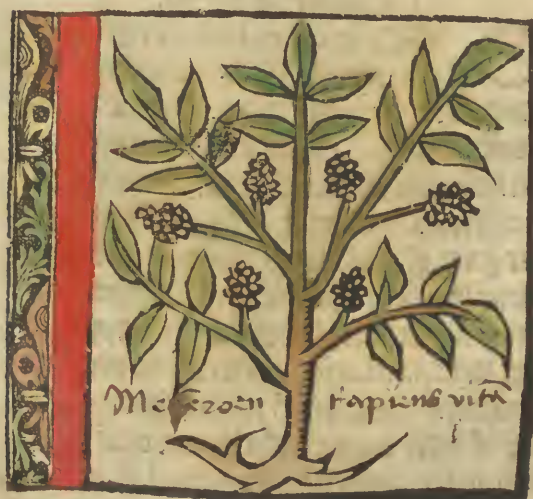 Mezeroen rapiens vitā